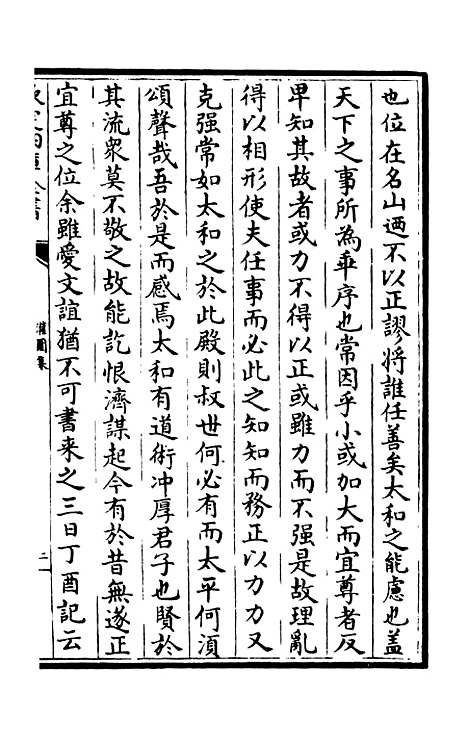 也位在名山迺不以正謬將誰任善矣太和之能慮也蓋
天下之事所為乖序也常因乎小或加大而宜尊者反
卑知其故者或力不得以正或雖力而不强是故理亂
得以相形使夫任事而必此之知知而務正以力力又
克强常如太和之於此殿則叔世何必有而太平何湏
頌聲哉吾於是而感焉太和有道術冲厚君子也賢於
其流衆莫不敬之故能訖恨濟謀起今有於昔無遂正
宜尊之位余雖愛文誼猶不可書来之三日丁酉記云
灌園集
二